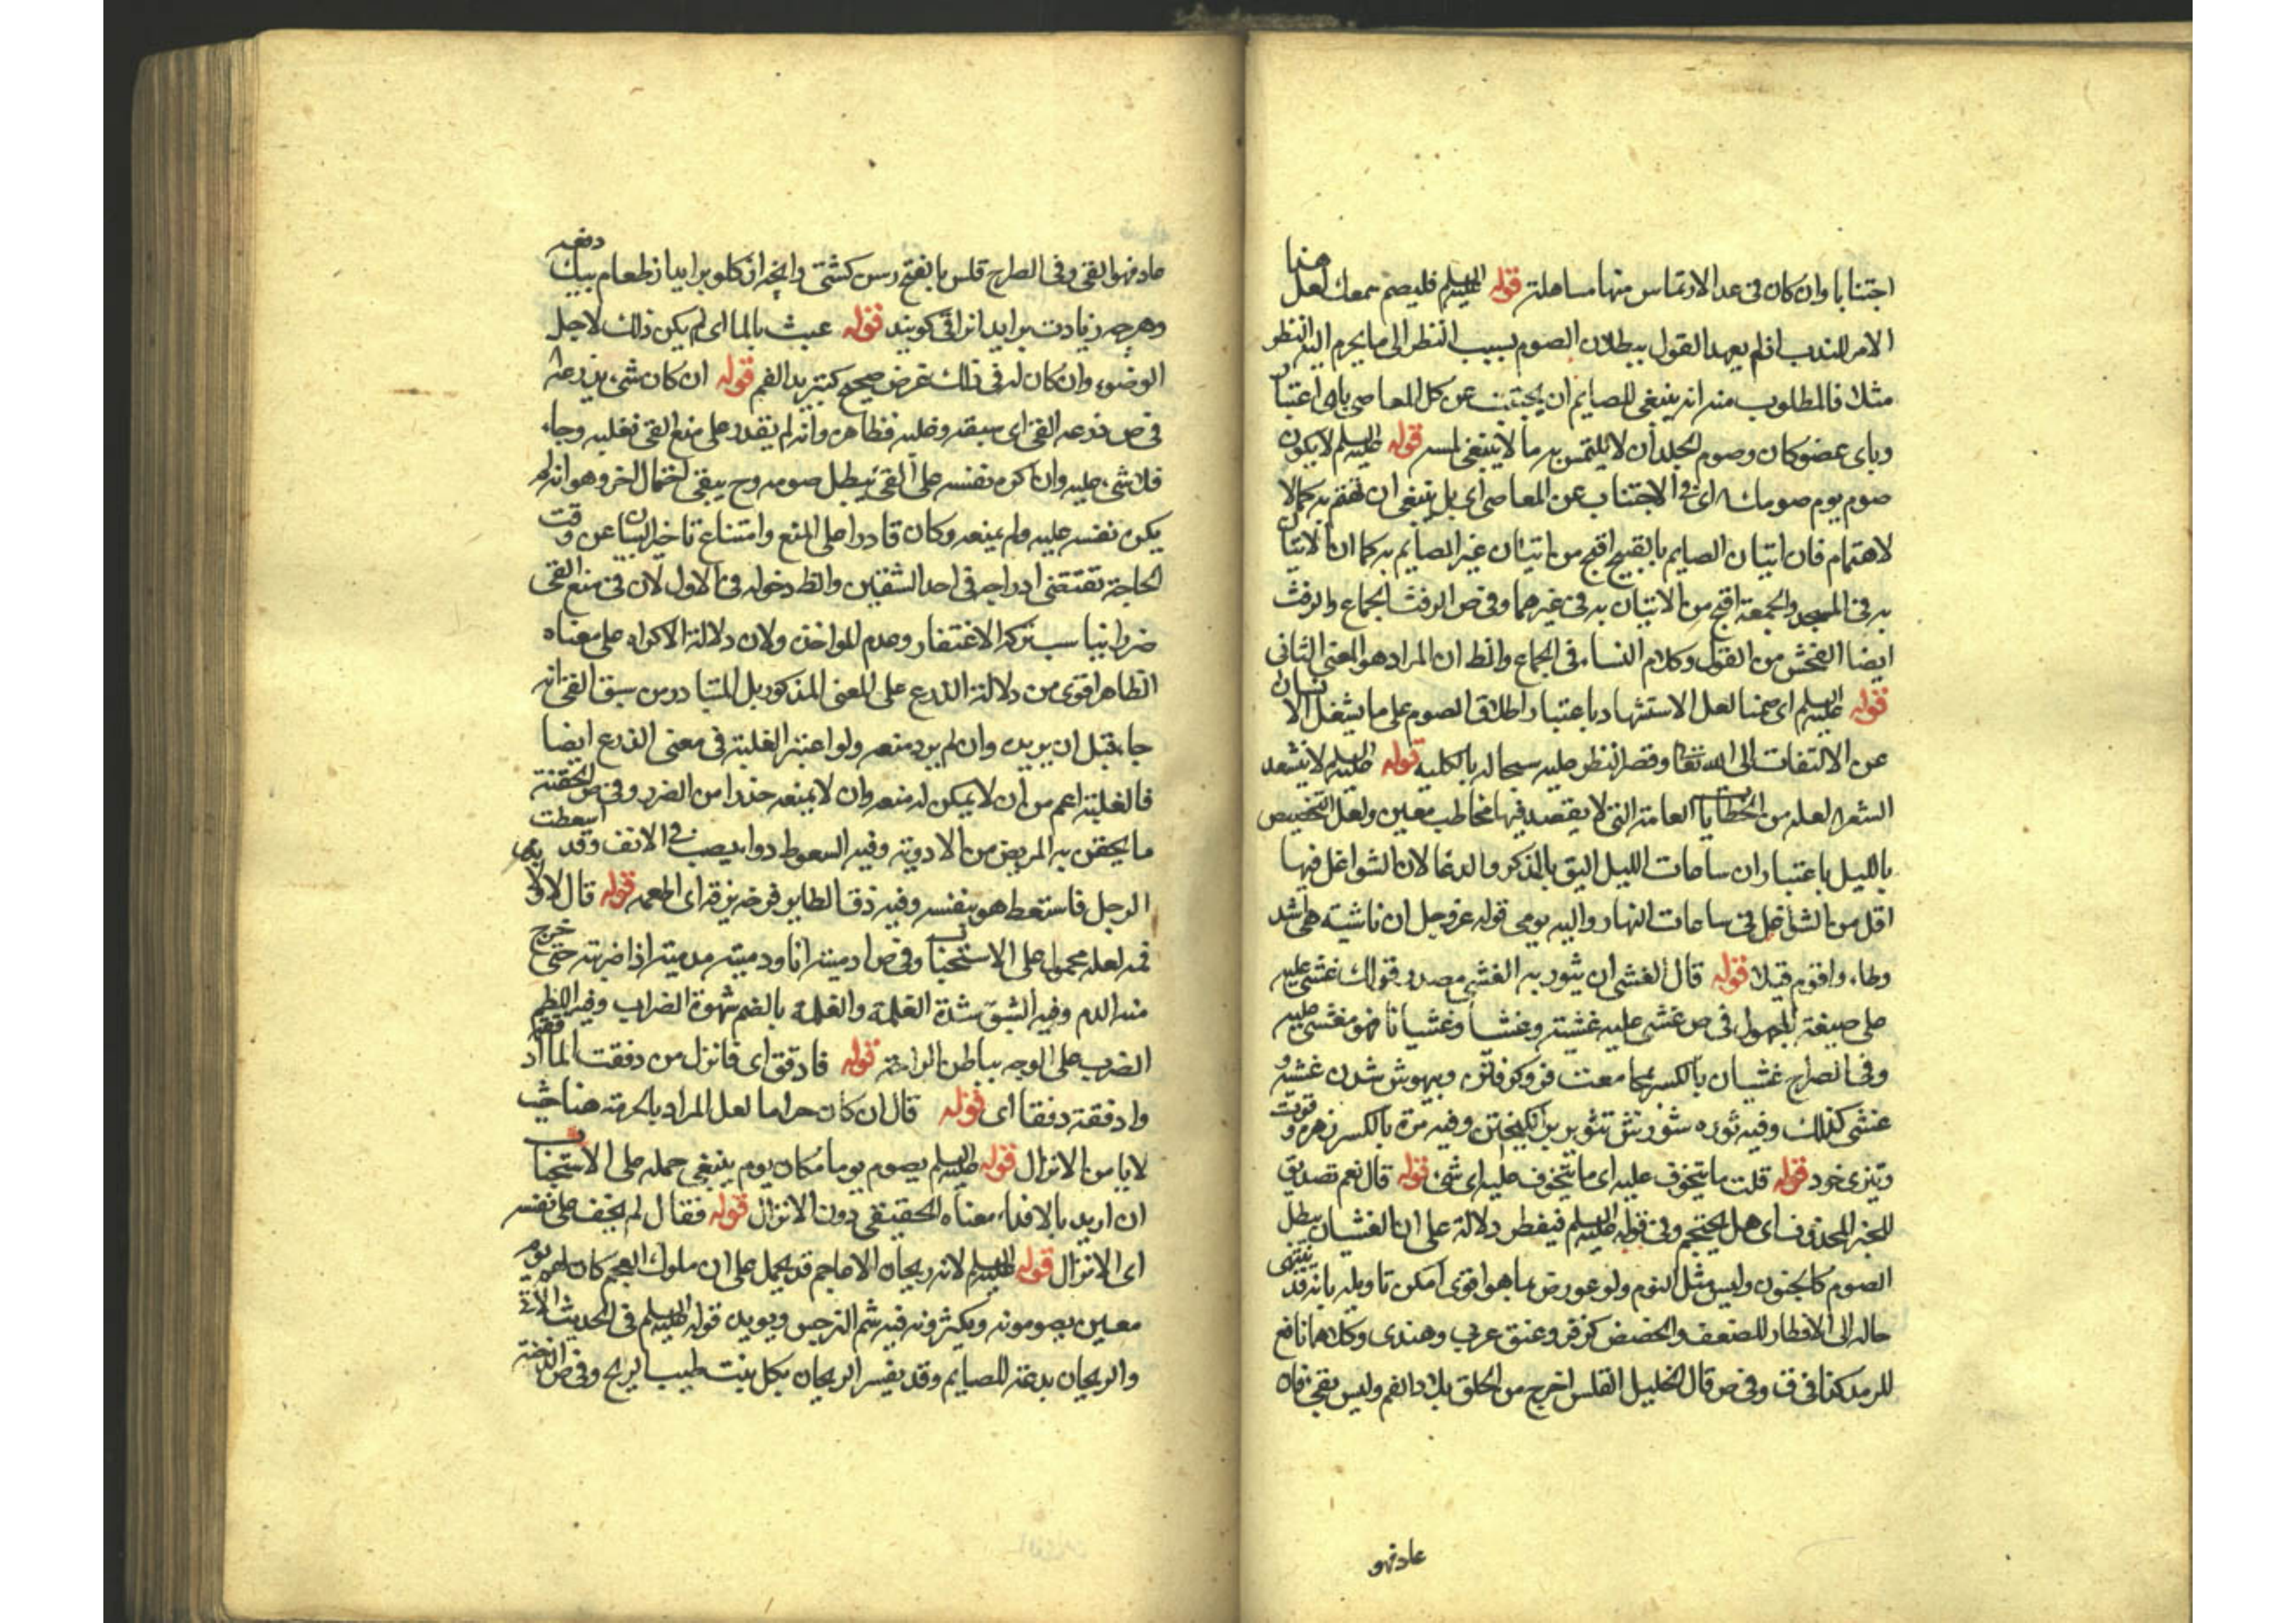 اجتنابا وان كان فى عد الارتماس منها مساهلة قوله عليه السلم فليصم سمعك لعل هنا
الامر للندب اذ لم يعهد القول ببطلان الصوم بسبب النظر الى ما يحرم اليه النظر
مثلا فالمطلوب منه انه ينبغى للصايم ان يجتنب عن كل المعاصى باى اعتبار
وباى عضو كان وصوم الجلد ان لا يلتمس به ما لا ينبغى لمسه قوله عليه السلم لا يكون
صوم يوم صومك اى فى الاجتناب عن المعاصى اى بل ينبغى ان تهتم به كمال
الاهتمام فان اتيان الصايم بالقبيح اقبح من اتيان غير الصايم به كما ان الاتيان
به فى المسجد والجمعة اقبح من الاتيان به فى غيرهما وفى ص الرفث الجماع والرفث
ايضا الفحش من القول وكلام النساء فى الجماع والظ ان المراد هو المعنى الثانى
قوله عليه السلم اى صمتا لعل الاستشهاد باعتبار اطلاق الصوم على ما يشغل الانسان
عن الالتفات الى الله تعا وقصر النظر عليه سبحانه بالكلية قوله عليه السلم لا ينشد
الشعر لعله من الخطابات العامة التى لا يقصد فيها مخاطب معين ولعل التخصيص
بالليل باعتبار ان ساعات الليل اليق بالذكر والدعا لان الشواغل فيها
اقل من الشاغل فى ساعات النهار واليه يومى قوله عز وجل ان ناشئة هى اشد
وطاء واقوم قيلا قوله قال الغشى ان يثور به الغشى مصدر قولك غشى عليه
على صيغة المجهول فى ص غشى عليه غشية وغشيا وغشيانا فهو مغشى عليه
وفى الصراح غشيان بالكسر مجامعت فرو كوفتن وبيهوش شدن غشية و
غشى كذلك وفيه ثوره شورش تثوير بر انگيختن وفيه مرة بالكسر زهره وقوت
وتيزى خود قوله قلت ما يتخوف عليه اى ما يتخوف عليه اى شئ قوله قال نعم تصديق
للخبر المحذوف اى هل يحتجم وفى قوله عليه السلم فيفطر دلالة على ان الغشيان يبطل
الصوم كالجنون وليس مثل النوم ولو عورض بما هو اقوى امكن تاويله بانه قد ينتهى
حاله الى الافطار للضعف والحضض كزفر وعنق عربى وهندى وكلاهما نافع
للرمد كذا فى ق وفى ص قال الخليل القلس ما خرج من الحلق ملاء الفم وليس بقئ فان
عاد فهو
عاد فهو القى وفى الصراح قلس بالفتح رسن كشتى وانچه از گلو بر ايد از طعام بيك دفعه
وهرچه زيادت بر ايد انرا قى گويند قوله عبث بالما اى لم يكن ذلك لاجل
الوضوء وان كان له فى ذلك غرض صحيح كتبريد الفم قوله ان كان شئ يذرعه
فى ص ذرعه القئ اى سبقه وغلبه فظاهره وانه لم يقدر على منع القئ فغلبه وجاء
فلا شئ عليه وان اكره نفسه على القئ يبطل صومه وح يبقى احتمال اخر وهو انه لم
يكره نفسه عليه ولم يمنعه وكان قادرا على المنع وامتناع تاخير البيان عن وقت
الحاجة تقتضى ادراجه فى احد الشقين والظ دخوله فى الاول لان فى منع القئ
ضررا يناسب تركه الاغتفار وعدم المواخذة ولان دلالة الاكراه على معناه
الظاهر اقوى من دلالة الذرع على المعنى المذكور بل المتبادر من سبق القئ انه
جاء قبل ان يريده وان لم يرد منعه ولو اعتبر الغلبة فى معنى الذرع ايضا
فالغلبة اعم من ان لا يمكن له منعه وان لا يمنعه حذرا من الضرر وفى ص الحقنة
ما يحقن به المريض من الادوية وفيه السعوط دواء يصب فى الانف وقد اسعطت
الرجل فاستعط هو بنفسه وفيه زق الطاير فرخه يزقه اى اطعمه قوله قال لا ولا
فمه لعله محمول على الاستحباب وفى ص ادميته انا ودميته تدمية اذا ضربته حتى خرج
منه الدم وفيه الشبق شدة الغلمة والغلمة بالضم شهوة الضراب وفيه اللطم
الضرب على الوجه بباطن الراحة قوله فادفق اى فانزل من دفقت الما ادفقه
وادفقة دفقا اى قوله قال ان كان حراما لعل المراد بالحرمة هنا حيث
لا يامن الانزال قوله عليه السلم يصوم يوما مكان يوم ينبغى حمله على الاستحباب
ان اريد بالامذاء معناه الحقيقى دون الانزال قوله فقال لم يخف على نفسه
اى الانزال قوله عليه السلم لانه ريحان الاعاجم قد يحمل على ان ملوك العجم كان لهم يوم
معين يصومونه ويكثرون فيه شم النرجس ويويده قوله عليه السلم فى الحديث الاتى
والريحان بدعة للصايم وقد يفسر الريحان بكل نبت طيب الريح وفى ص